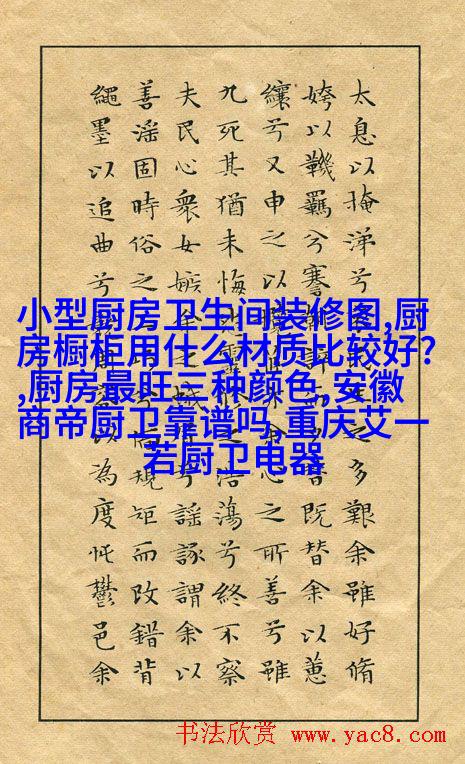 太息以掩涕兮之多艱余雖好脩
姱以鞿羈兮謇既替余以蕙
纕兮又申之以心之所善兮雖
九死其猶未悔之浩蕩兮終不察
夫民心衆女嫉余之兮謠諑謂余以
善淫固時俗之規矩而改錯背
繩墨以追曲兮以為度忳鬱邑余
小型厨房卫生间装修图,厨
房橱柜用什么材质比较好?
,厨房最旺三种颜色,安徽
商帝厨卫靠谱吗,重庆艾一
若厨卫电器
书法欣赏 www.yac8.com